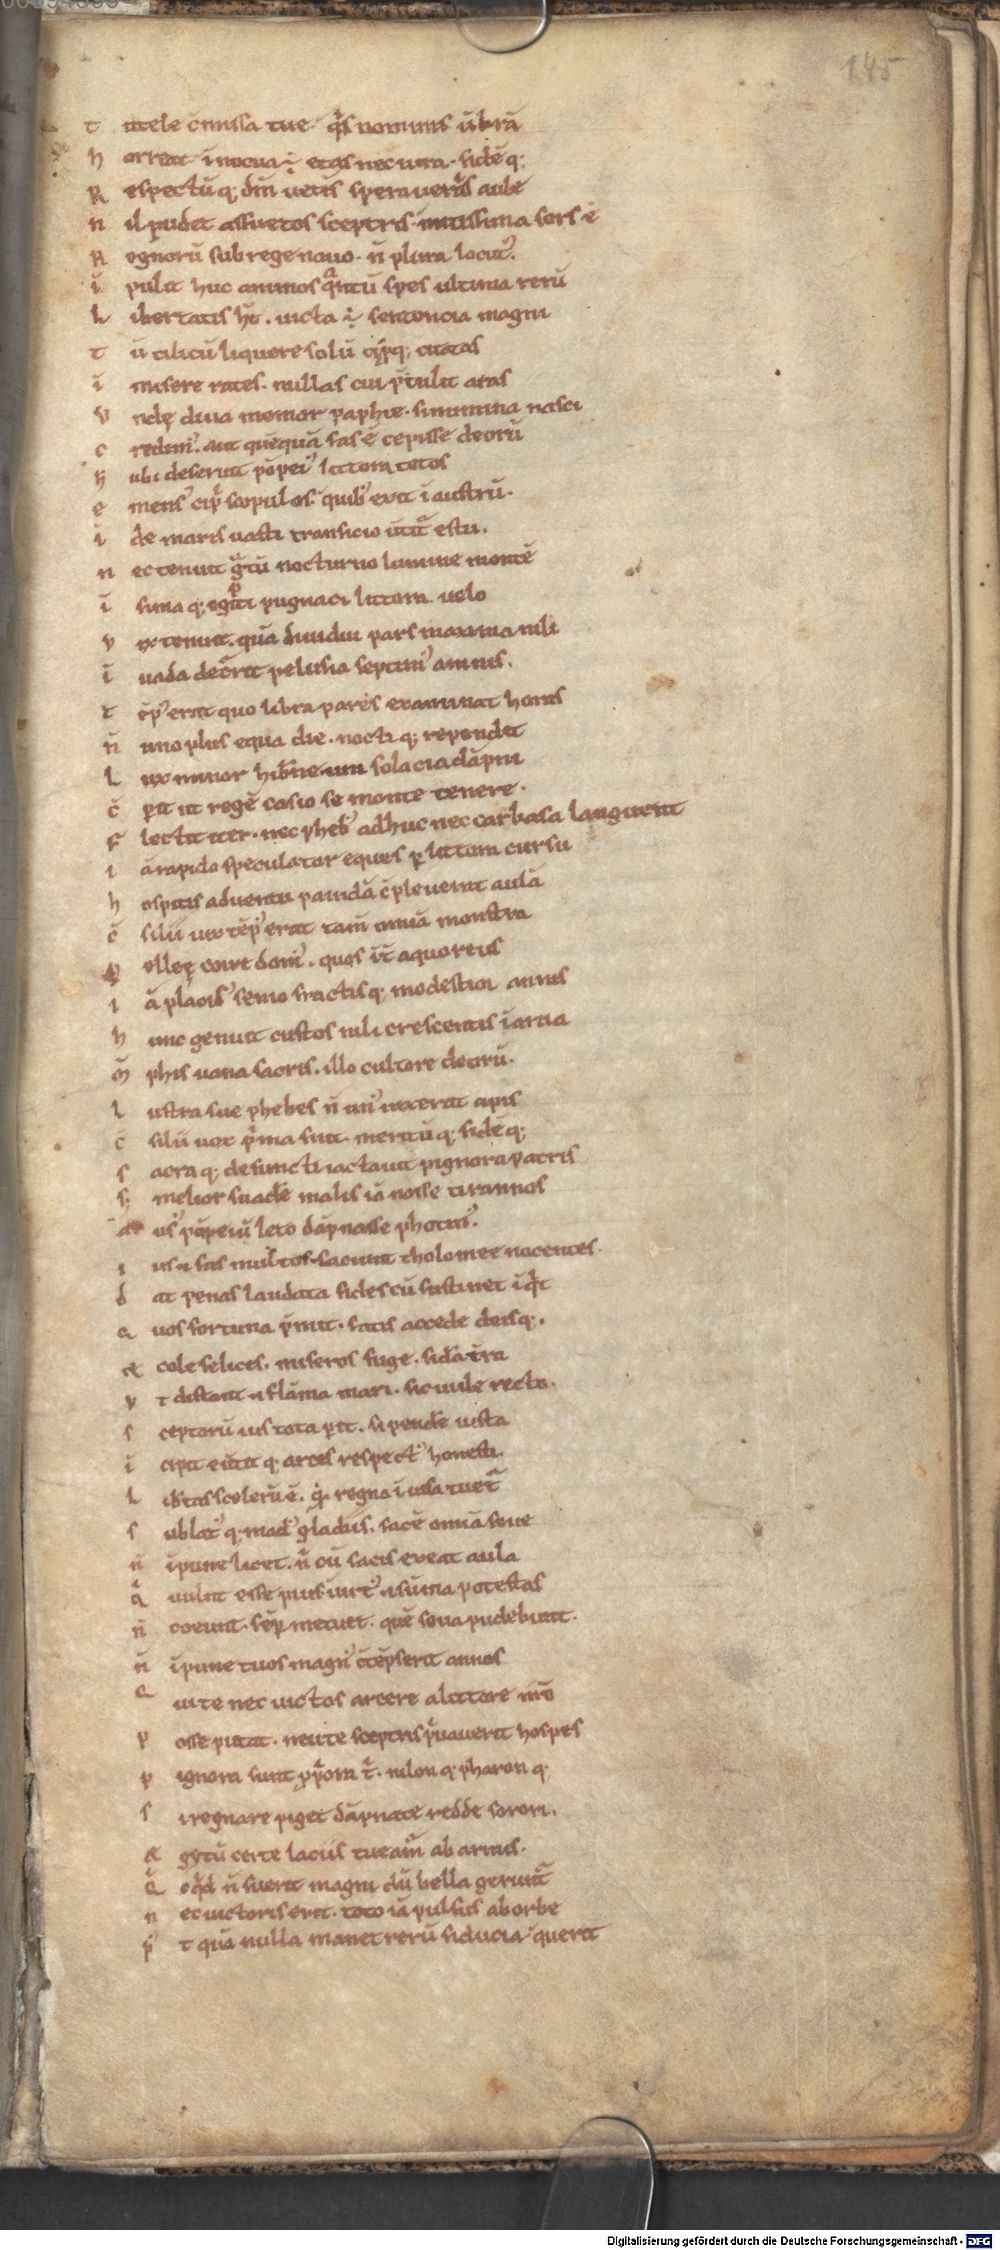 145
t utele c̄missa tue. q̄s nominis ūbrā
h orreat i nocua ÷ etas nec iura. fidē q;
R espectū q; dn̄i uetis speraueris aule
n il pudet assuetos sceptris. mitissima sors ē
R egnorū sub rege nouo. n̄ plura locut᾿.
i pulit huc animos q̄ntū spes ultima rerū
L ibertatis h̄t. uicta ÷ sentencia magni
t ū cilicū liquere solū cip̄q; citatas
i misere rates. nullas cui p̄tulit aras
V ndę diua memor paphie. si numina nasci
c redim᾿. aut quēquā fas ē cepisse deorū
h ubi deseruit pōpei᾿ littora totos
e mens᾿ cip̄ scopulos. quib᾿ exit i austrū.
i de maris uasti transicio ūtit᾿ estu.
n ec tenuit ḡtū nocturno lumine montē
i fima q; egipti pugnaci littora uelo
v ix tenuit. qua diuidui pars maxima nili
i uada decūrit pelusia septim᾿ amnis.
t ēp᾿ erat quo libra pares examinat horas
n̄ uno plus equa die. nocti q; rependit
L ux minor hib̄ne uni solacia dāpni
c̄ perit ut regē casio se monte tenere.
F lectit iter. nec pheb᾿ adhuc nec carbasa languent
i ā rapido speculator eques per littora cursu
h ospitis aduentu pauidā c̄pleuerat aulā
c̄ silii uix tēp᾿ erat tam̄ omnia monstra
p ellęę coire dom᾿. quos īt᾿ aquoreus
i ā placid᾿ senio fractis q; modestior annis
h unc genuit custos nili crescentis i arua
m̄ phis uana sacris. illo cultore deorū.
l ustra sue phebes n̄ un᾿ uixerat apis
c̄ silii uox p̄ma fuit. meritū q; fidē q;
s acra q; defuncti iactauit pignora patris
s; melior suadere malis iā nosse tirannos
a us᾿ pōpeiū leto dāpnasse photin᾿.
i us et fas multos faciunt tholomee nocentes.
d at penas laudata fides cū sustinet iq̄t
q uos fortuna p̄mit. fatis accede deisq;.
et cole felices. miseros fuge. sid̄a t̄ra
v t distant et flāma mari. sic utile recto.
s ceptorū uis tota perit. si pendere iusta
i cipit euertit q; arces respect᾿ honesti.
L ib̄tas scelerū ē. q̄ regna iuisa tuet᾿
s ublat᾿ q; mod᾿ gladiis. facē omnia seue
n̄ ipune licet. n̄ cū facis exeat aula
q̄ uult esse pius uirt᾿ et sūma potestas
n̄ coeunt. sēp metuet. quē seua pudebunt.
n̄ ipune tuos magn᾿ c̄tēpserit annos
q ui te nec uictos arcere a littore n̄ro
p osse putat. neu te sceptris p̄uauerit hospes
p ignora sunt p̄piora t᾿. nilon q; pharon q;
s i regnare piget dāpnate redde sorori.
e gytū certe laciis tueam᾿ ab armis.
q̄ cq̄d n̄ fuerit magni dū bella gerunt᾿
n ec uictoris erit. toto iā pulsus ab orbe
p̄ t quā nulla manet rerū fiducia. querit
Digitalisierung gefördert durch die Deutsche Forschungsgemeinschaft - DFG